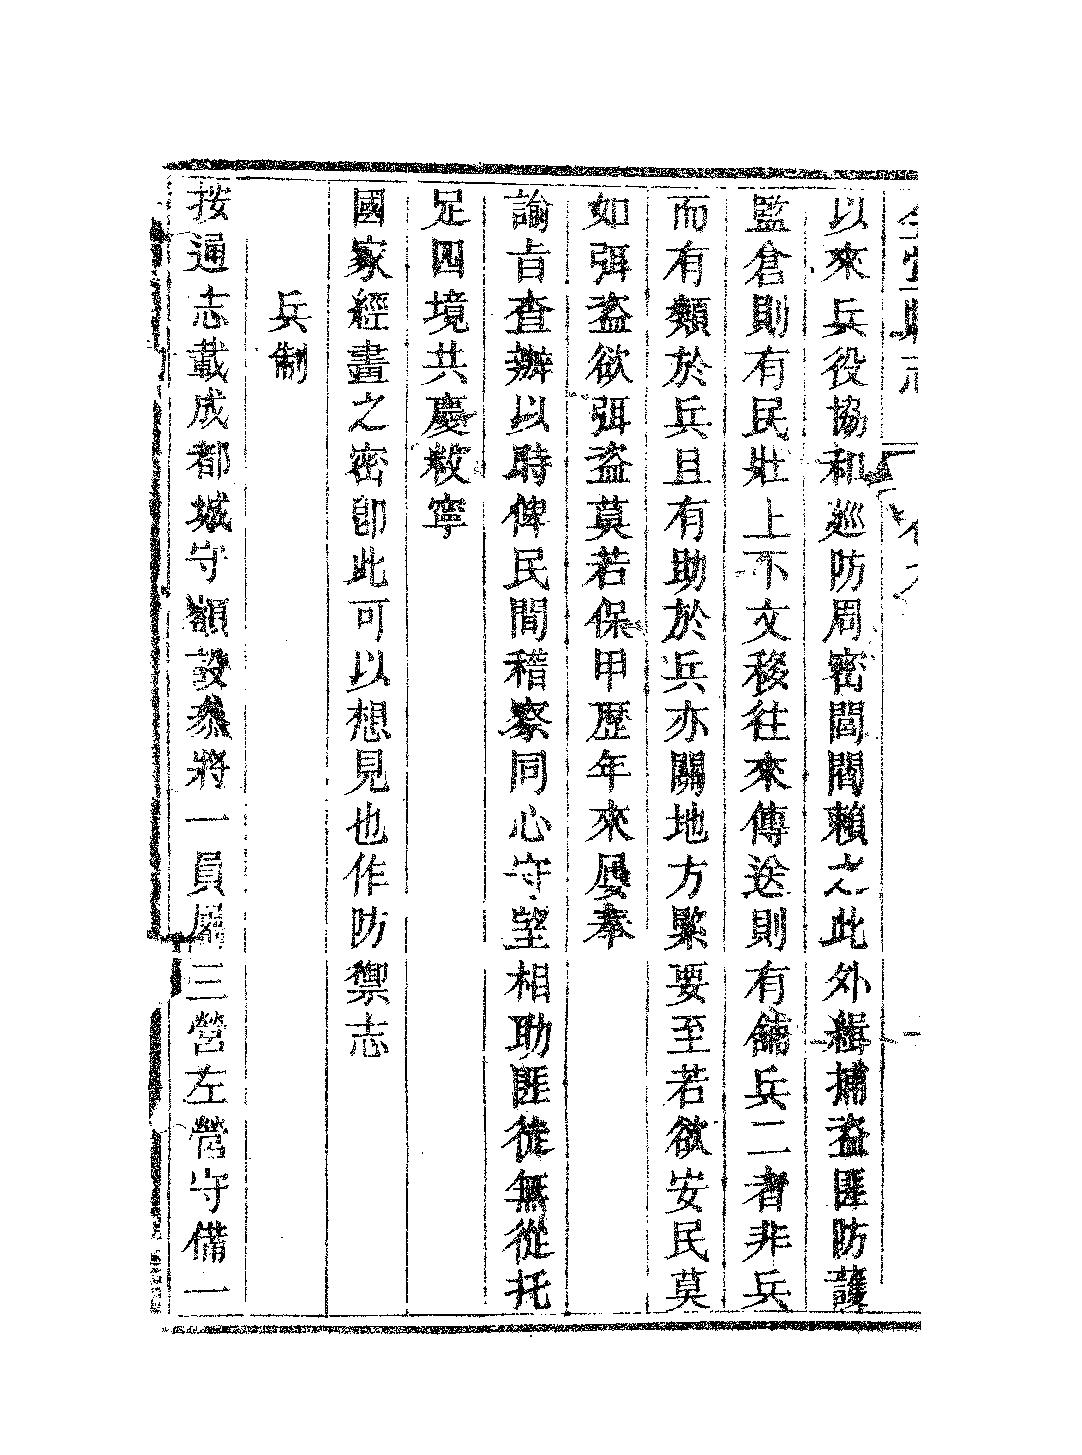 以來兵役協和巡防周密閭閻賴之此外緝捕盗匪防護
監倉則有民壯上下文移往來傳送則有舖兵二者非兵
而有類於兵且有助於兵亦關地方槩要至若欲安民莫
如弭盗欲弭盗莫若保甲歷年來屡奉
諭旨查辦以時俾民間稽察同心守望相助匪徒無從托
足四境共慶敉寧
國家經畫之密卽此可以想見也作防禦志
兵制
按通志載成都城守額設叅將一員屬三營左營守備一